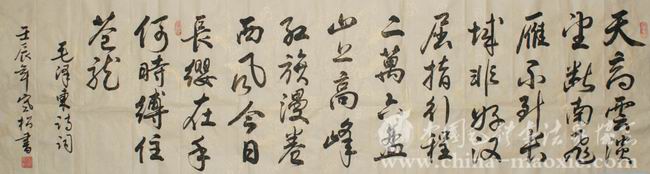 天高雲淡
望斷南飛
雁不到长
城非好汉
屈指行程
二萬六盘
山上高峰
红旗漫卷
西风今日
長缨在手
何時縛住
苍龙
毛泽東诗词
壬辰年松書
www.china-maoxie.com